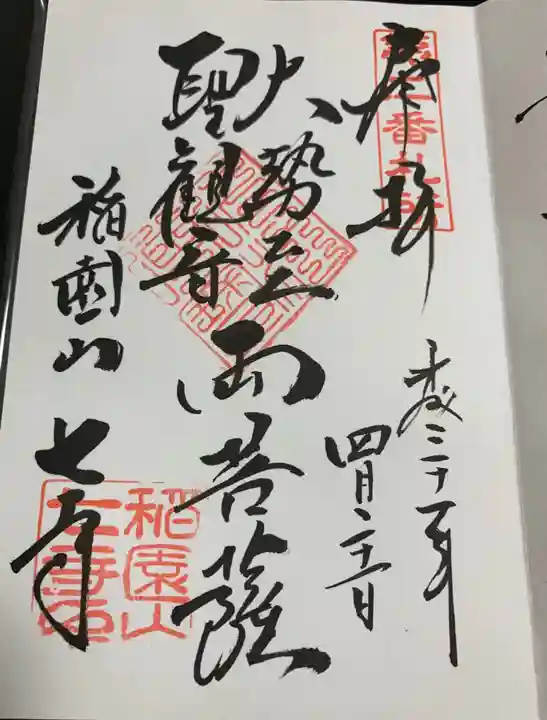 奉拝
平成三十一年
四月二十一日
大勢至
聖観音
両菩薩
稲園山 七寺
稲園山